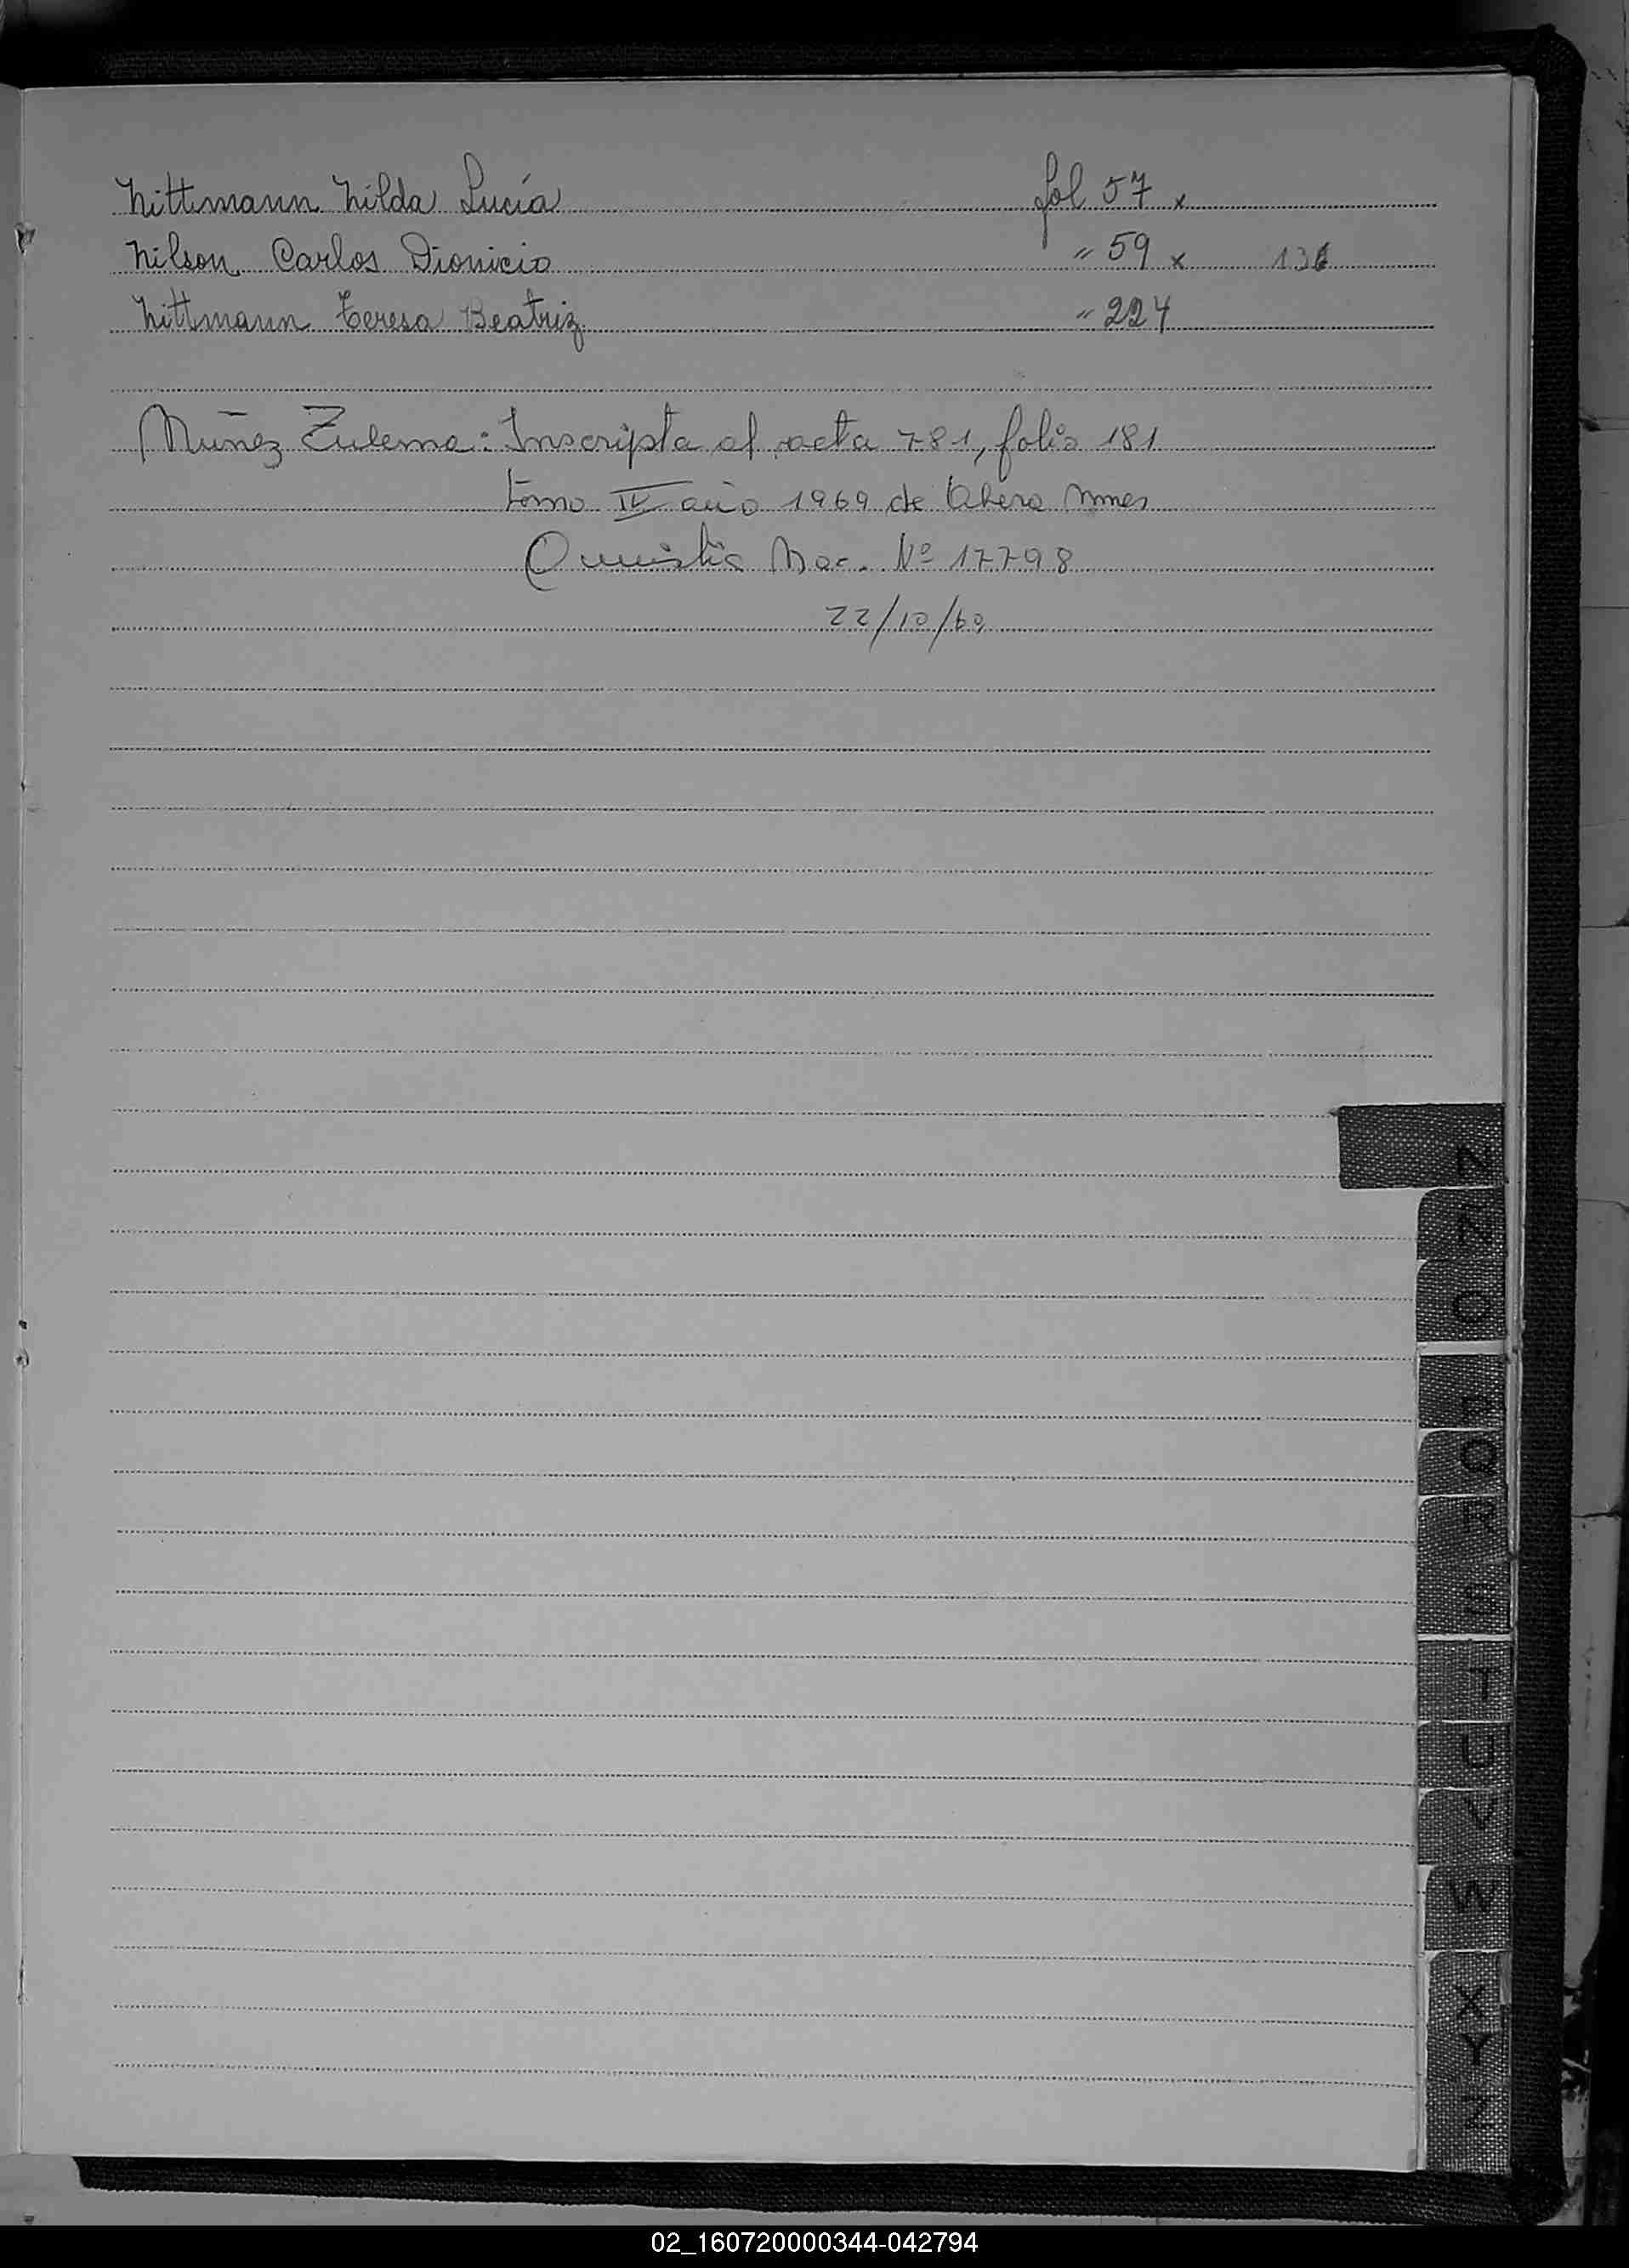 Nittmann Nilda Lucía fol 57 x
Nilson Carlos Dionicio " 59 x 136
Nittmann Teresa Beatriz " 224
Muñez Zulema: Inscripta al acta 781, folio 181
tomo IV año 1969 de Obera Mnes
Amnistia Nac. Nº 17798
22/10/69
N
Ñ
O
P
Q
R
S
T
U
V
W
X
Y
Z
02_160720000344-042794